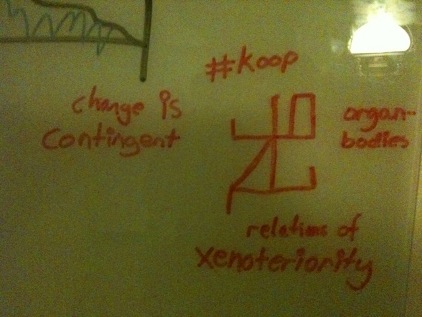 #koop
change is
contingent
organ-
bodies
relations of
xenoteriority